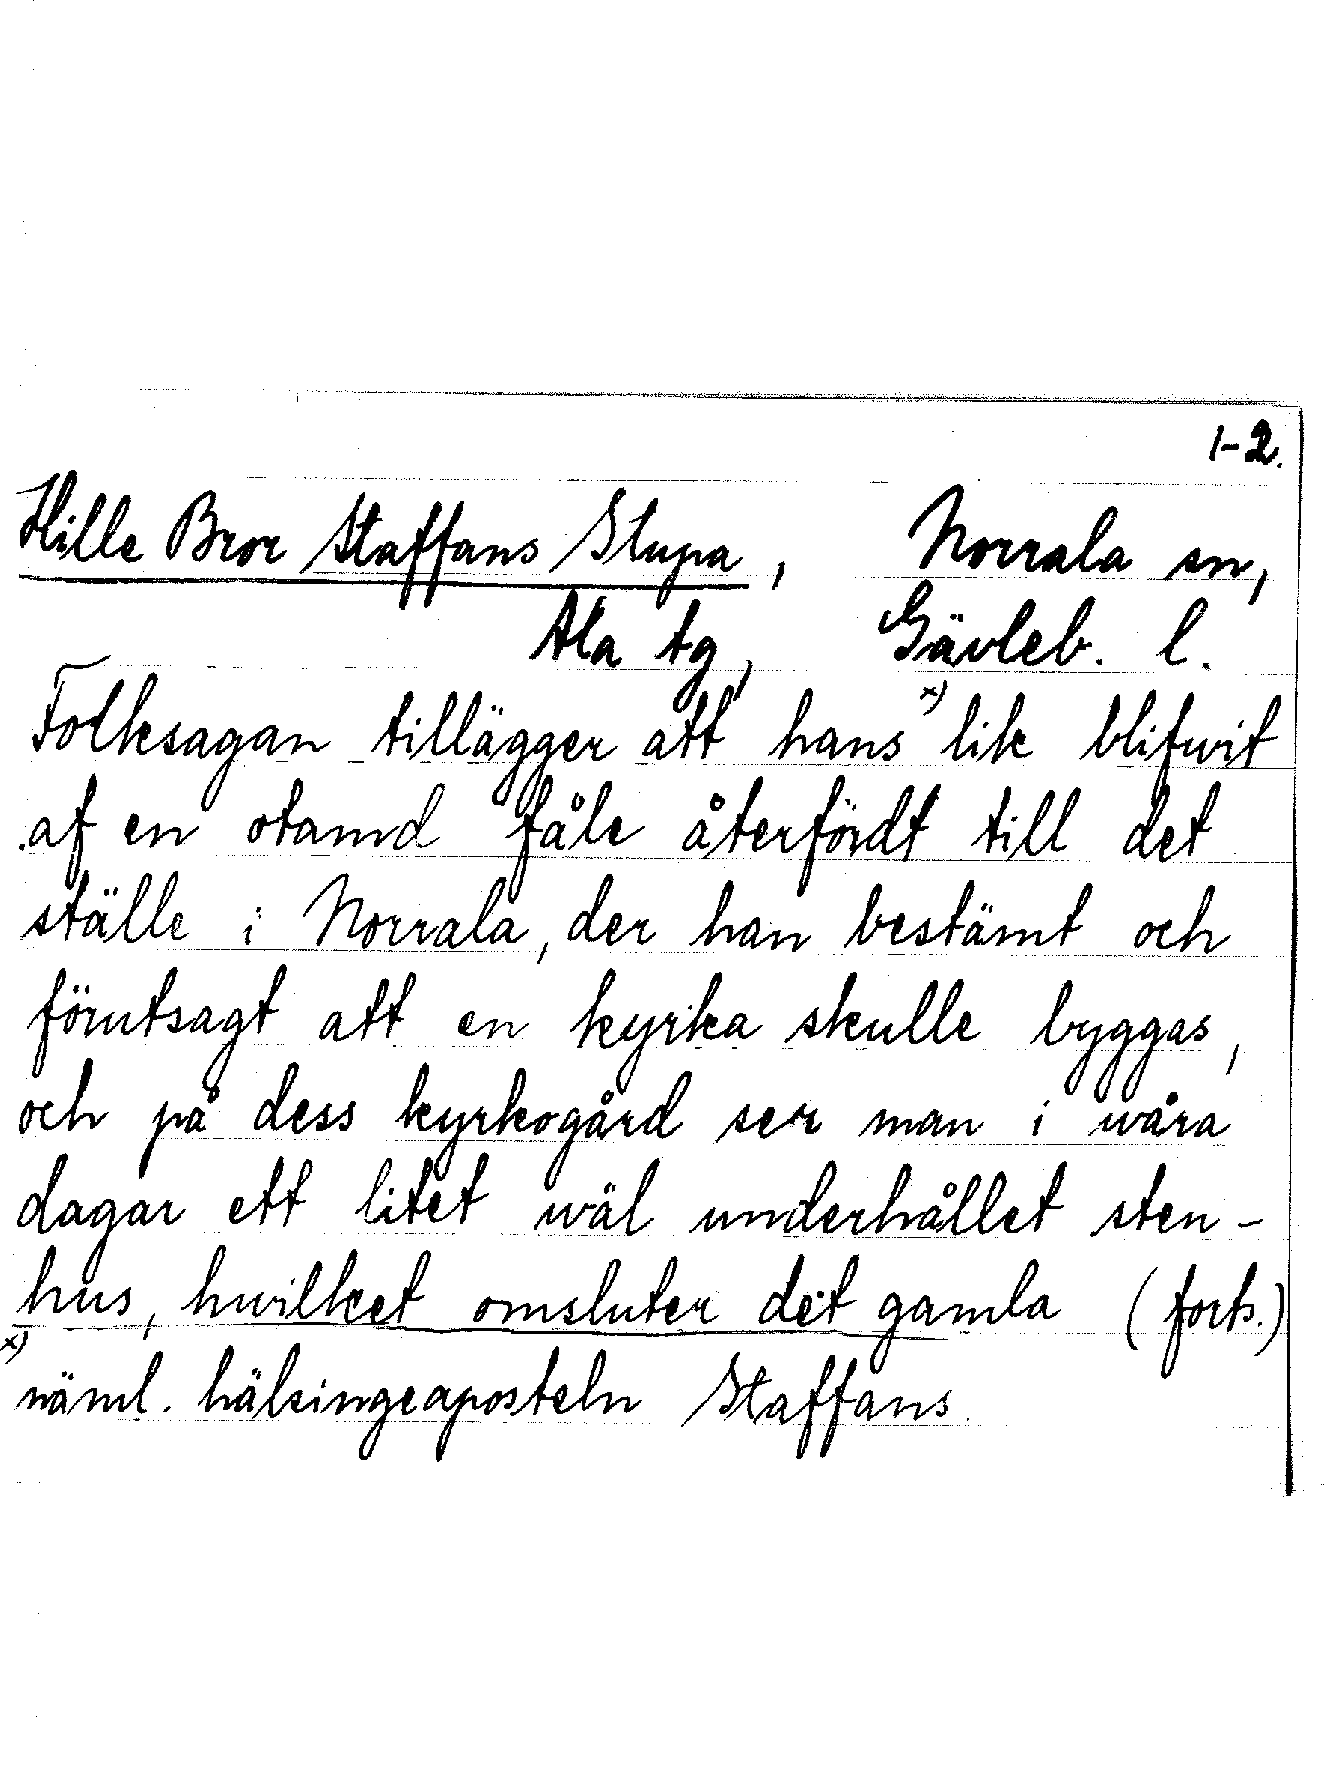 1-2.
Hille Bror Staffans Stupa, Norrala sn,
Ala tg, Gävleb. l.
Folksagan tillägger att hans x) lik blifwit
af en otamd fåle återfördt till det
ställe i Norrala, der han bestämt och
förutsagt att en kyrka skulle byggas,
och på dess kyrkogård ser man i wåra
dagar ett litet wäl underhållet sten-
hus, hwilket omsluter det gamla (forts.)
x) näml. hälsingeaposteln Staffans